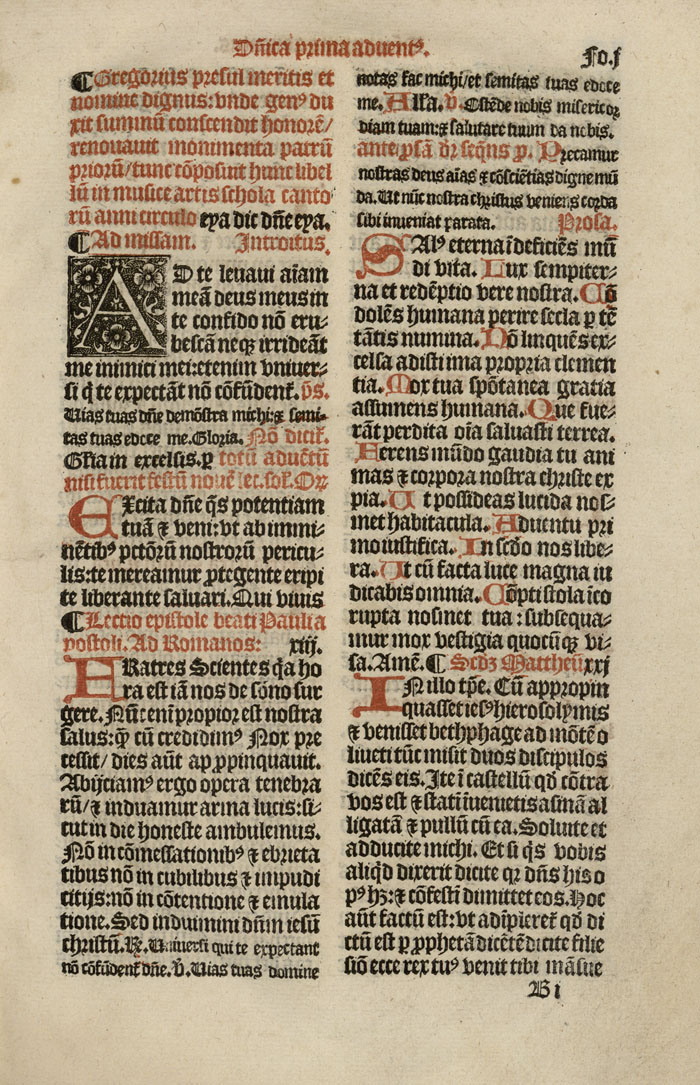 Dñica prima aduentꝰ.
Fo.j
¶Gregorius presul meritis et
nomine dignus: vnde genꝰ du
xit summũ conscendit honorẽ/
renouauit monimenta patrũ
priorũ/tunc cõposuit hunc libel
lũ in musice artis schola canto
rũ anni circulo eya dic dñe eya.
¶Ad missam. Introitus.
AD te leuaui aĩam
meã deus meus in
te confido nõ eru-
bescã neqꝫ irrideãt
me inimici mei: etenim vniuer-
si q̃ te expectãt nõ cõfũdenť. p̃s.
Uias tuas dñe demõstra michi: ⁊ semi-
tas tuas edoce me. Gloria. Nõ diciť.
Gl̃ia in excelsis. ꝑ totũ aduẽtũ
nisi fuerit festũ nouẽ lec. sol̃. Or̃
EXcita dñe q̃s potentiam
tuã ⁊ veni: vt ab immi-
nẽtibꝰ pctõrũ nostrorũ pericu-
lis: te mereamur ꝓtegente eripi
te liberante saluari. Qui viuis
¶Lectio epistole beati Pauli a
postoli. Ad Romanos: xiij.
FRatres Scientes q̃a ho
ra est iã nos de sõno sur
gere. Nũc eni ̃propior est nostra
salus: q̃ cũ credidimꝰ Nox pre
cessit/dies aũt apꝓpinquauit.
Abijciamꝰ ergo opera tenebra
rũ/⁊ induamur arma lucis: si-
cut in die honeste ambulemus.
Nõ in cõmessationibꝰ ⁊ ebrieta
tibus nõ in cubilibus ⁊ impudi
citijs: nõ in cõtentione ⁊ emula
tione. Sed induimini dñm iesũ
christũ. ℟. Uniuersi qui te expectant
nõ cõfũdenť dñe. ℣. Uias tuas domine
notas fac michi/et semitas tuas edoce
me. Alla. v. Ostẽde nobis misericor
diam tuam: ⁊ salutare tuum da nobis.
ante ꝓsã dr̃ seq̃ns p. Precamur
nostras deus aĩas ⁊ cõsciẽtias digne mũ
da. Ut nũc nostra christus veniens corda
sibi inueniat parata. Prosa.
SAlꝰ eterna ĩdeficiẽs mũ
di vita. Lux sempiter-
na et redẽptio vere nostra. Cõ
dolẽs humana perire secla ꝑ tẽ
tãtis numina. Nõ linquẽs ex-
celsa adisti ima propria clemen
tia. Mox tua spõtanea gratia
assumens humana. Que fue-
rãt perdita oĩa saluasti terrea.
Ferens mũdo gaudia tu ani
mas ⁊ corpora nostra christe ex
pia. Ut possideas lucida nos-
met habitacula. Aduentu pri
mo iustifica. In sedo nos libe-
ra. Ut cũ facta luce magna iu
dicabis omnia. Cõpti stola ĩco
rupta nosmet tua: subsequa-
mur mox vestigia quocũqꝫ vi-
sa. Amẽ. ¶ Scdꝫ Mattheũ xxj
IN illo tp̃e. Cũ appropin
quasset iesꝰ hierosolymis
⁊ venisset bethphage ad mõtẽ o
liueti tũc misit duos discipulos
dicẽs eis. Ite ĩ castellũ qd̃ cõtra
vos est ⁊ statĩ iuenietis asinã al
ligatã ⁊ pullũ cũ ea. Soluite et
adducite michi. Et si q̃s vobis
aliqd̃ dixerit dicite qr̃ dñs his o
pꝰ hꝫ: ⁊ cõfestĩ dimittet eos. Hoc
aũt factũ est: vt adĩplereť qd̃ di
ctũ est ꝑ ꝓphetã dicẽtẽ dicite filie
siõ ecce rex tuꝰ venit tibi mãsue
B i